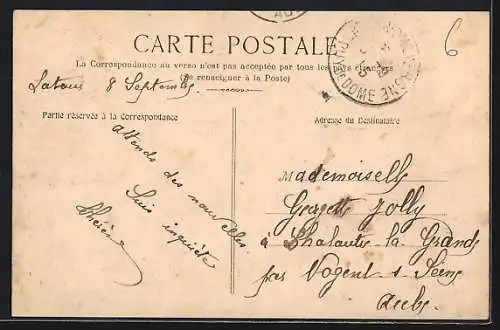 CARTE POSTALE
La Correspondance au verso n'est pas acceptée par tous les pays étrangers
(Se renseigner à la Poste)
8 Septembre
Partie réservée à la Correspondance
Adresse du Destinataire
attends des nouvelles
Suis inquiète
Mademoiselle
Jolly
à Chalautre-la-Grande
par Nogent-s-Seine
Aube
PUY-DE-DOME
6